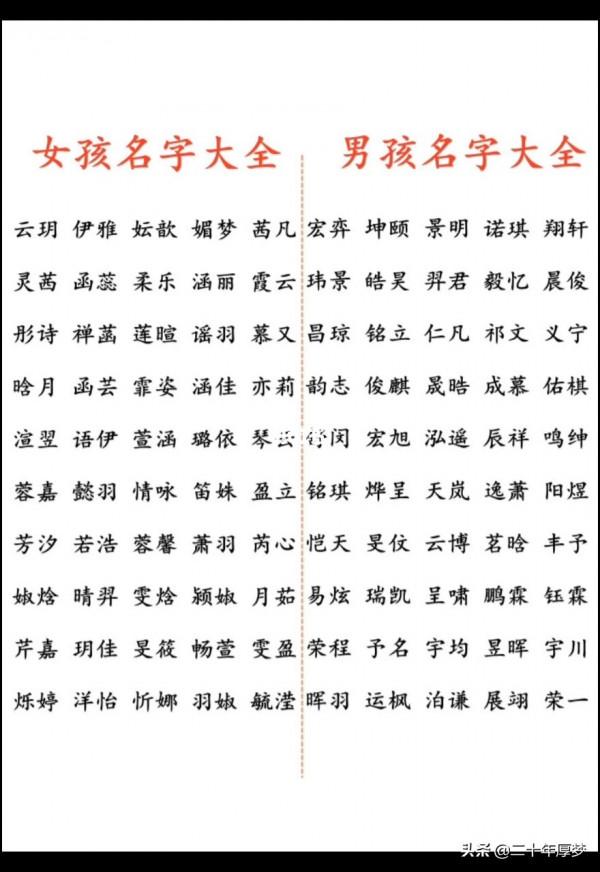 女孩名字大全 男孩名字大全
云玥 伊雅 妘歆 媚梦 茜凡 宏弈 坤颐 景明 诺琪 翔轩
灵茜 函蕊 柔乐 涵丽 霞云 玮景 皓昊 羿君 毅忆 晨俊
彤诗 禅菡 莲暄 谣羽 慕又 昌琼 铭立 仁凡 祁文 义宁
晗月 函芸 霏姿 涵佳 亦莉 韵志 俊麒 晟皓 成慕 佑祺
渲翌 语伊 萱涵 璐依 琴 闵 宏旭 泓遥 辰祥 鸣绅
蓉嘉 懿羽 情咏 笛姝 盈立 铭琪 烨呈 天岚 逸萧 阳煜
芳汐 若浩 蓉馨 萧羽 芮心 恺天 旻仪 云博 茗晗 丰予
婌焓 晴羿 雯焓 颍婌 月茹 易炫 瑞凯 呈啸 鹏霖 钰霖
芹嘉 玥佳 旻筱 畅萱 雯盈 荣程 予名 宇均 昱晖 宇川
烁婷 洋怡 忻娜 羽婌 毓滢 晖羽 运枫 泊谦 展翊 荣一
头条 @二十年厚梦